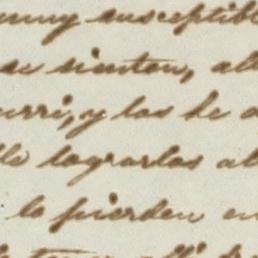 muy susceptibl
se sientan, al
urri, y los de a
lle lograrlos al
lo pierden en